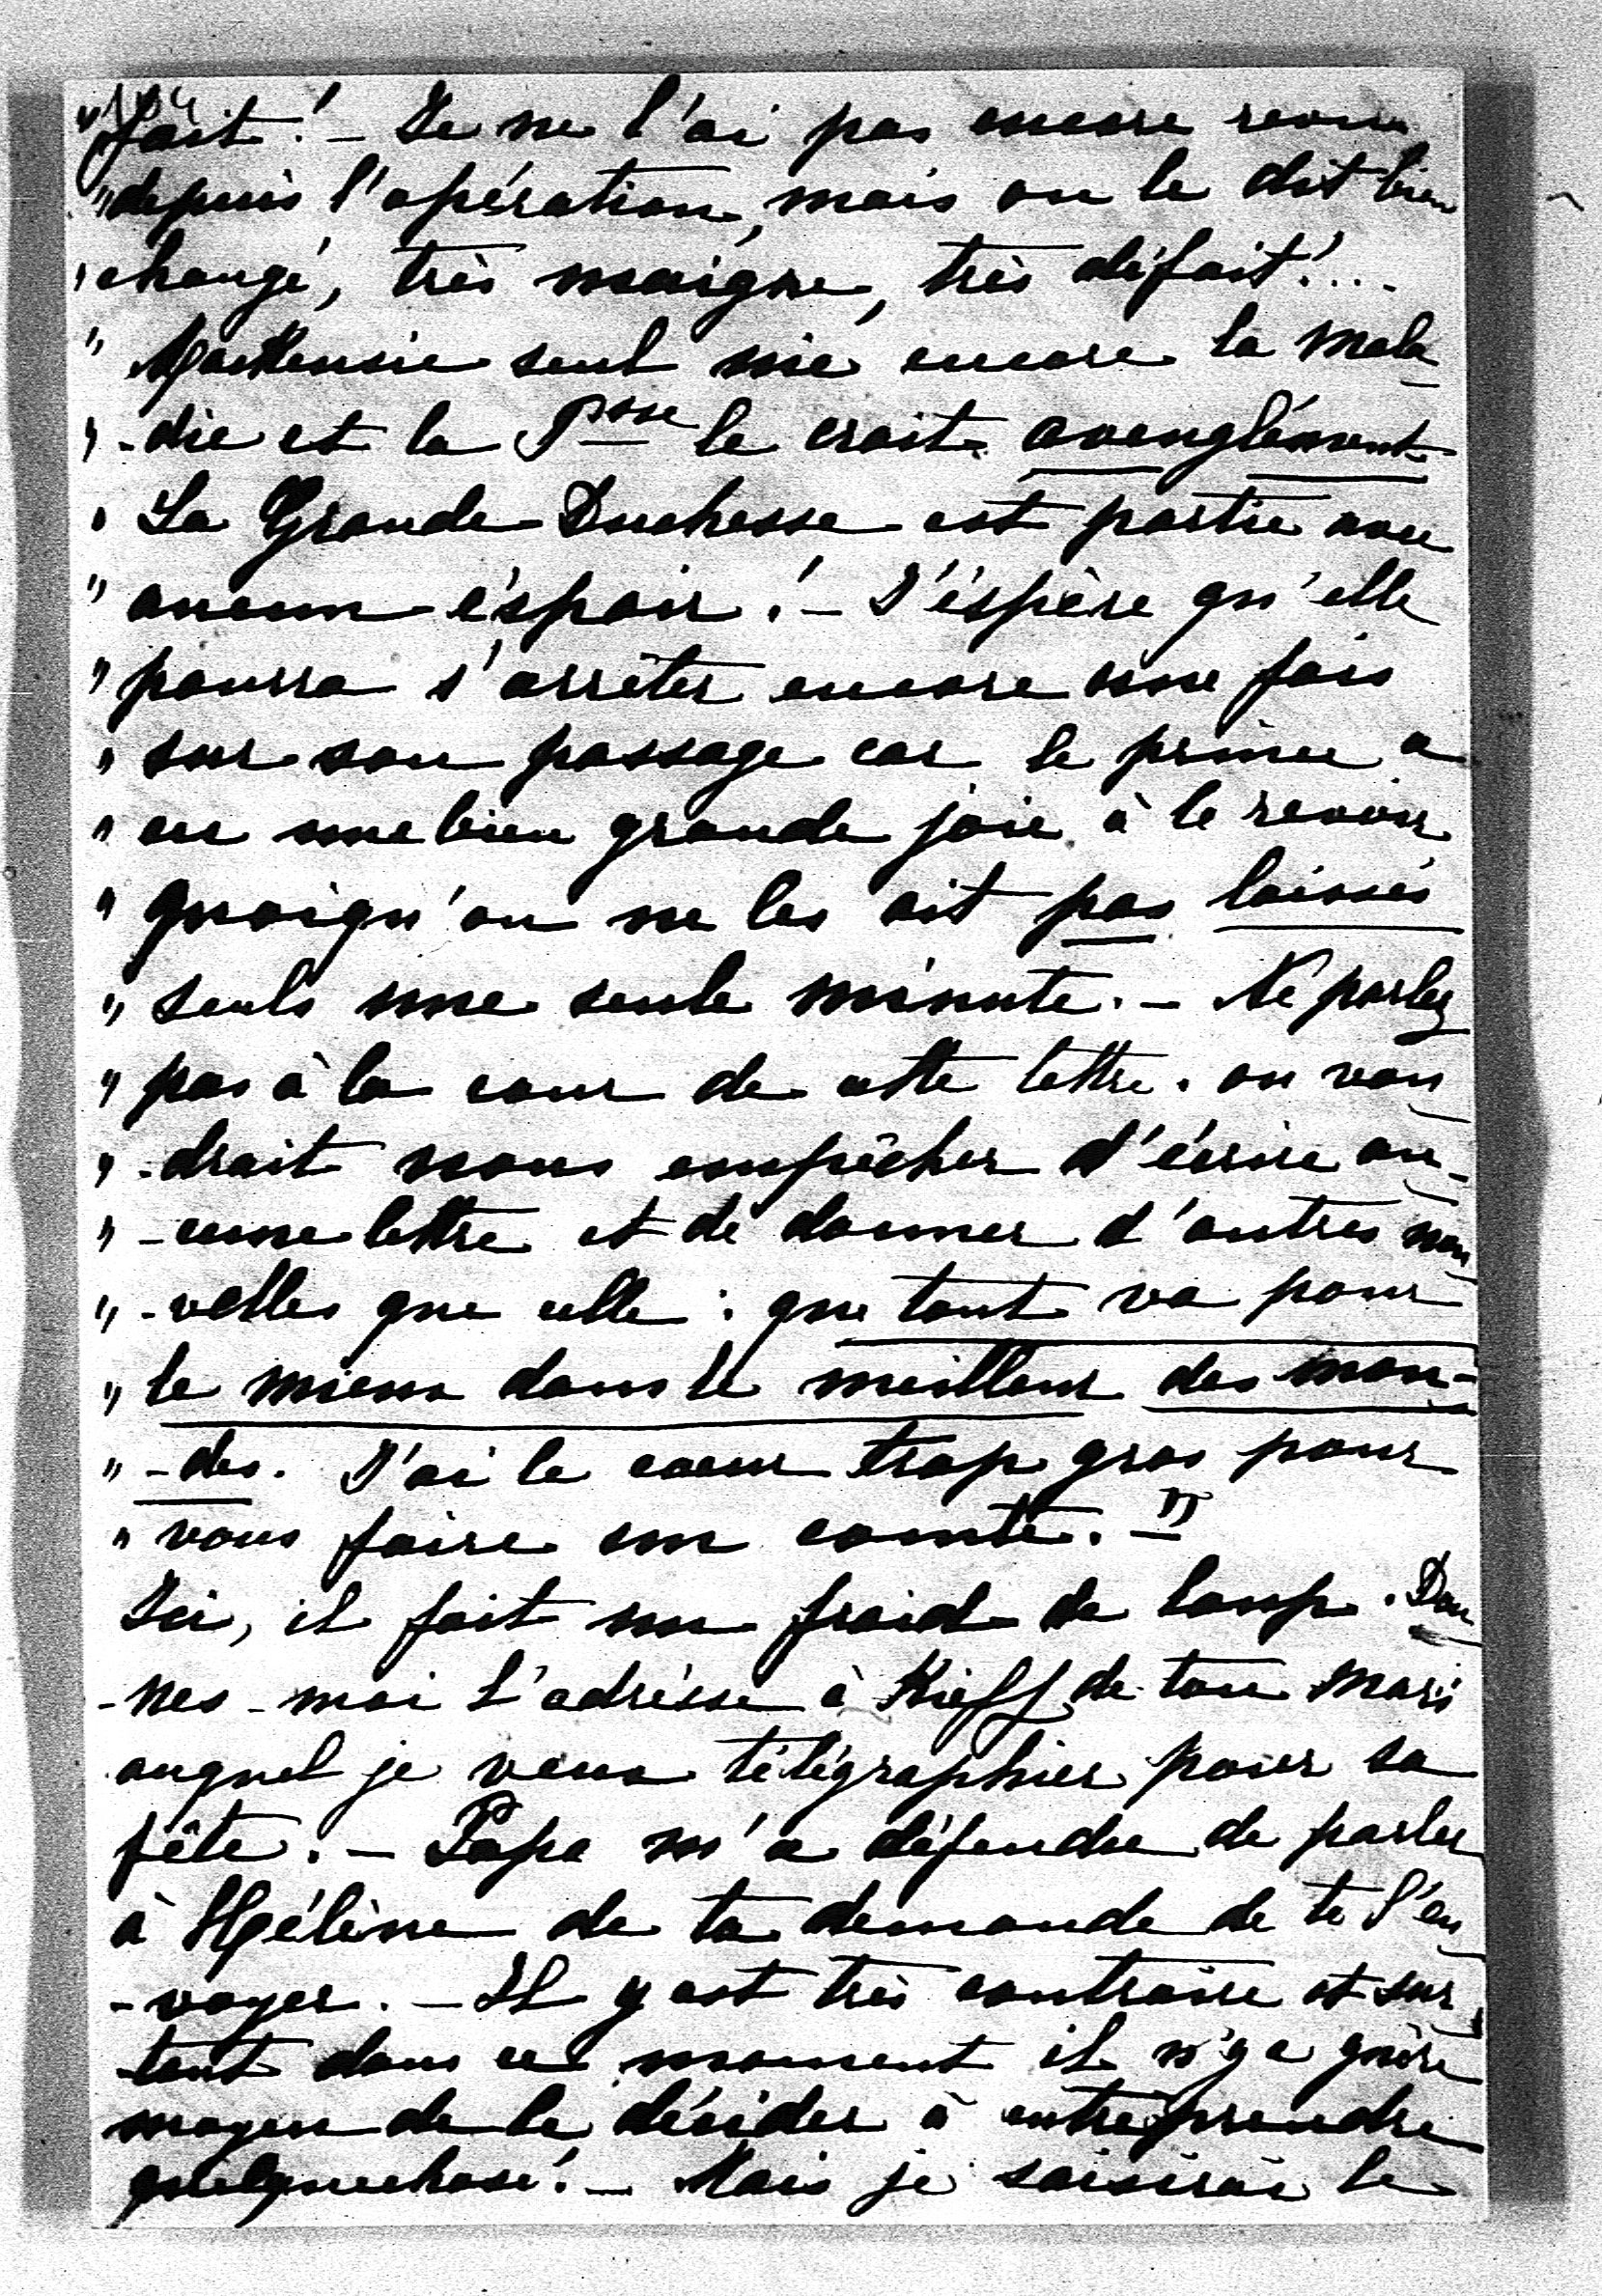 "fait! – Je ne l'ai pas encore revu
"depuis l'opération, mais on le dit bien
"changé, très maigre, très défait!...
"Mackensie seul nie encore la mala
"-die et la Psse le croit aveuglément
"La Grande Duchesse est partie avec
"aucun éspoir! – J'éspère qu'elle
"pourra s'arrêter encore une fois
"sur son passage car le prince a
"eu une bien grande joie à le revoir
"quoiqu'on ne les ait pas laissés
"seuls une seule minute. – Ne parlez
"pas à la cour de cette lettre. on vou
"-drait nous empêcher d'écrire au-
"-cune lettre et de donner d'autres nou
"-velles que celle: que tout va pour
"le mieux dans le meilleur des mon-
"-des. J'ai le coeur trop gros pour
"vous faire un comte. – "
Ici, il fait un froid de loup. Don
-nes-moi l'adrésse à Kieff de ton mari
auquel je veux télégraphier pour sa
fête. – Papa m'a défendu de parler
à Hélène de ta demande de te l'en
-voyer. – Il y est très contraire et sur
-tout dans ce moment il n'y a guère
moyen de le décider à entreprendre
quelquechose! – Mais je saisirai le